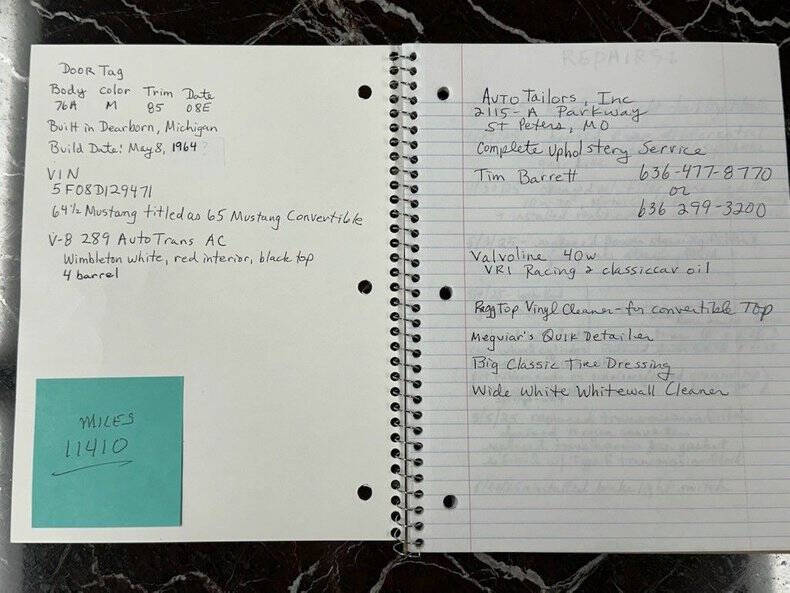 Door Tag
Body Color Trim Date
76A M 85 08E
Built in Dearborn, Michigan
Build Date: May 8, 1964
VIN
5F08D129471
64½ Mustang titled as 65 Mustang Convertible
V-8 289 Auto Trans AC
Wimbleton white, red interior, black top
4 barrel
MILES
11410
REPAIRS:
Auto Tailors, Inc
2115-A Parkway
St Peters, MO
Complete Upholstery Service
Tim Barrett 636-477-8770
or
636 299-3200
Valvoline 40w
VR1 Racing & classic car oil
RaggTop Vinyl Cleaner-for convertible Top
Meguiar's Quik Detailer
Big Classic Tire Dressing
Wide White Whitewall Cleaner